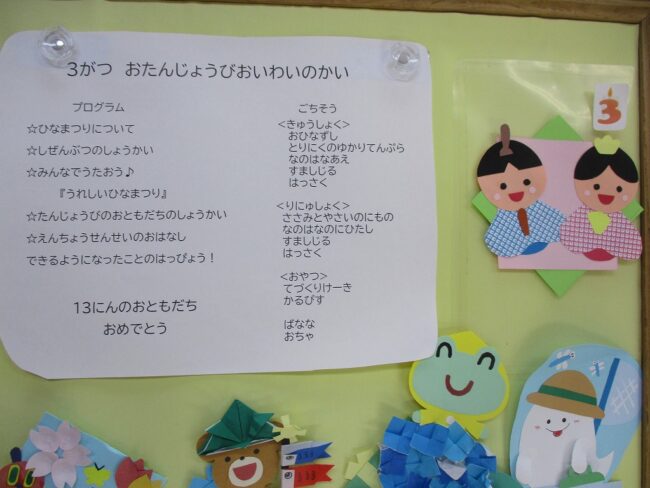 3がつ おたんじょうびおいわいのかい
プログラム
☆ひなまつりについて
☆しぜんぶつのしょうかい
☆みんなでうたおう♪
『うれしいひなまつり』
☆たんじょうびのおともだちのしょうかい
☆えんちょうせんせいのおはなし
できるようになったことのはっぴょう！
13にんのおともだち
おめでとう
ごちそう
<きゅうしょく>
おひなずし
とりにくのゆかりてんぷら
なのはなあえ
すましじる
はっさく
<りにゅしょく>
ささみとやさいのにもの
なのはなのにひたし
すましじる
はっさく
<おやつ>
てづくりけーき
かるぴす
ばなな
おちゃ
3